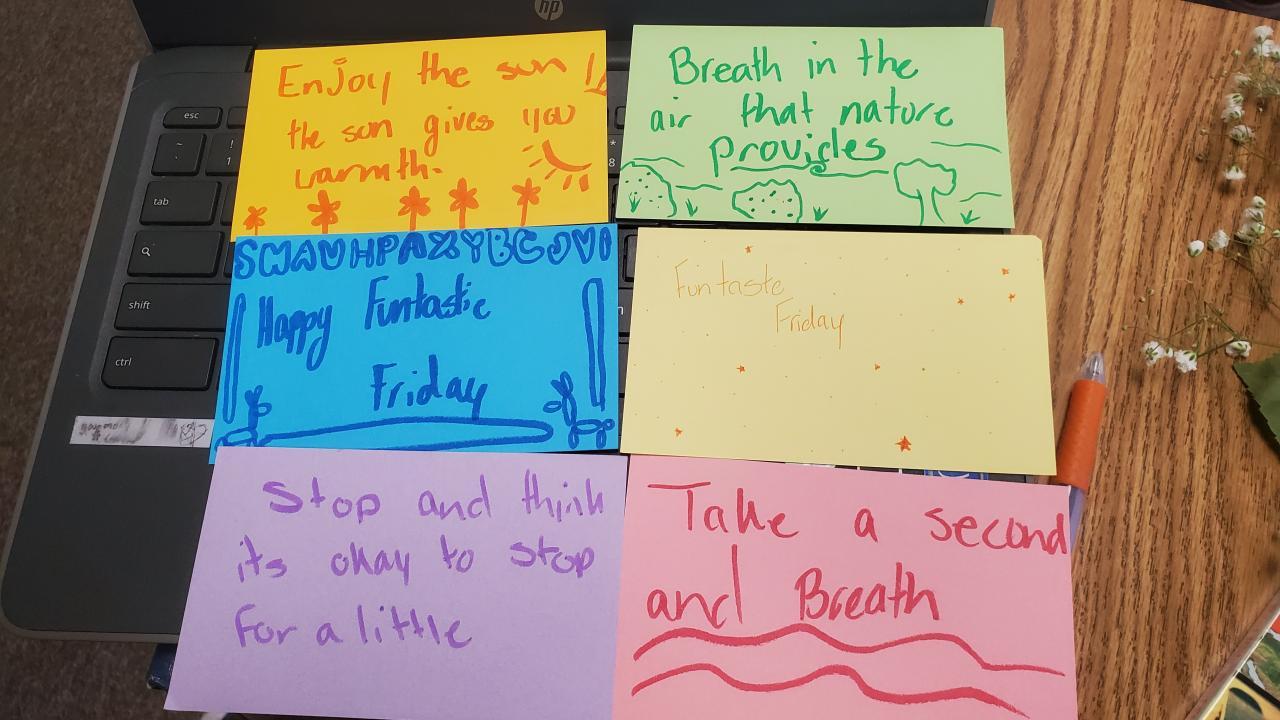 hp
esc
tab
shift
ctrl
Enjoy the sun !!
the sun gives you
warmth.
Breath in the
air that nature
provides
Happy Funtastic
Friday
Funtaste
Friday
Stop and think
its okay to stop
For a little
Take a second
and Breath